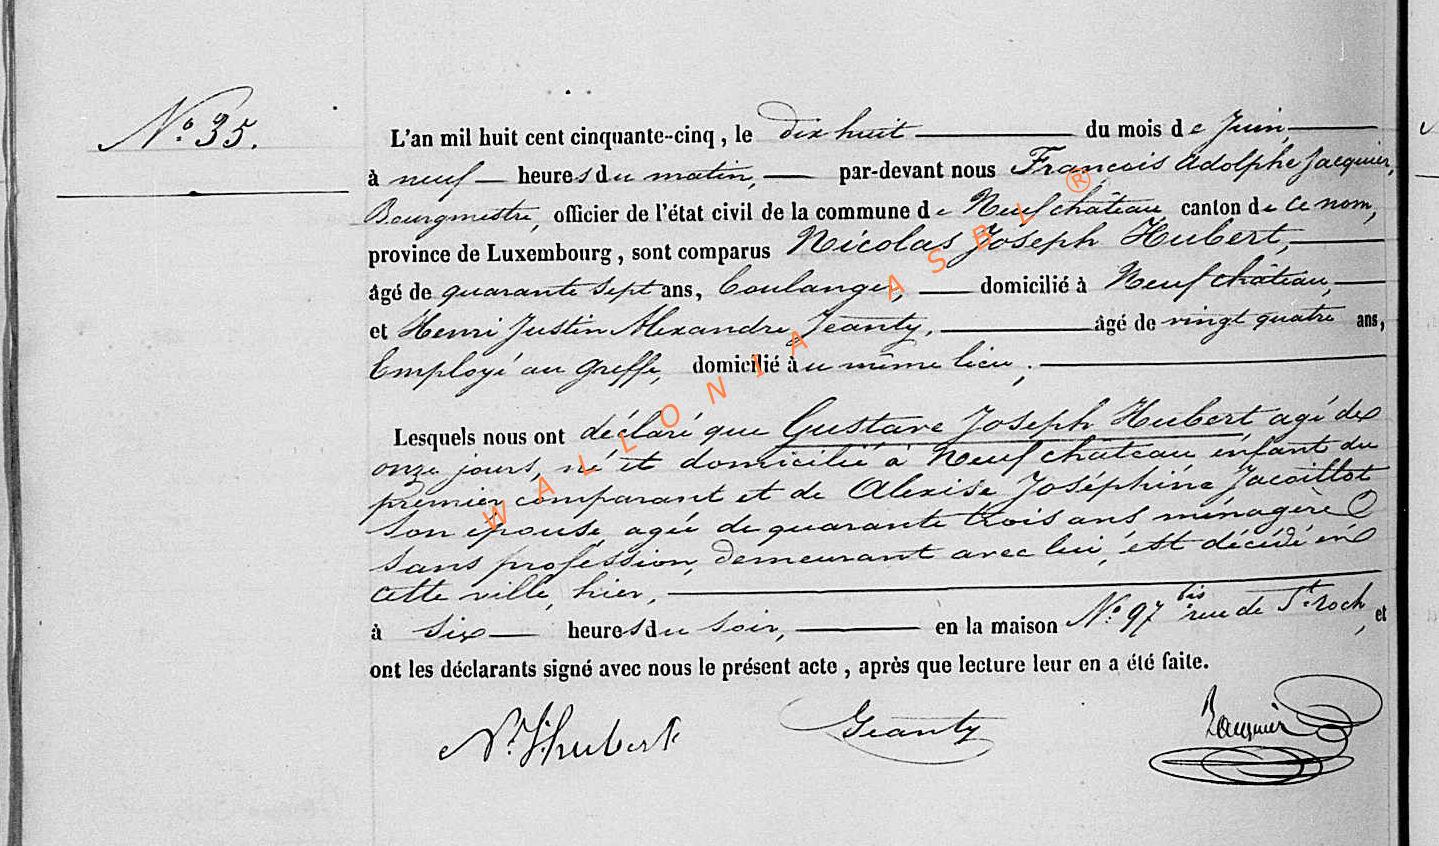 N° 35.
L'an mil huit cent cinquante-cinq, le dix huit du mois de Juin
à neuf heures du matin, par-devant nous Francois Adolphe Jacquier,
Bourgmestre, officier de l'état civil de la commune de Neufchâteau, canton de ce nom,
province de Luxembourg, sont comparus Nicolas Joseph Hubert,
âgé de quarante sept ans, boulanger, domicilié à Neufchâteau,
et Henri Justin Alexandre Jeanty, âgé de vingt quatre ans,
Employé au greffe, domicilié au même lieu;
Lesquels nous ont déclaré que Gustave Joseph Hubert agé de
onze jours, né et domicilié à Neufchateau enfant du
premier comparant et de Alexise Joséphine Jacoillot
son épouse, agée de quarante trois ans ménagère
sans profession, demeurant avec lui, est décédé en
cette ville, hier,
à six heures du soir, en la maison N° 97 bis rue de St Roch, et
ont les déclarants signé avec nous le présent acte, après que lecture leur en a été faite.
N. J. hubert Jeanty Jacquier
WALLONIA ASBL ®